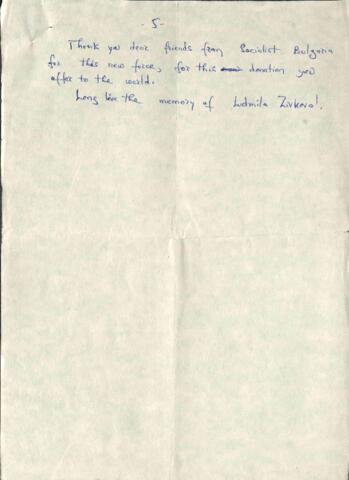 - 5 -
Thank you dear friends from Socialist Bulgaria
for this new force, for this donation you
offer to the world.
Long live the memory of Ludmila Zivkova!